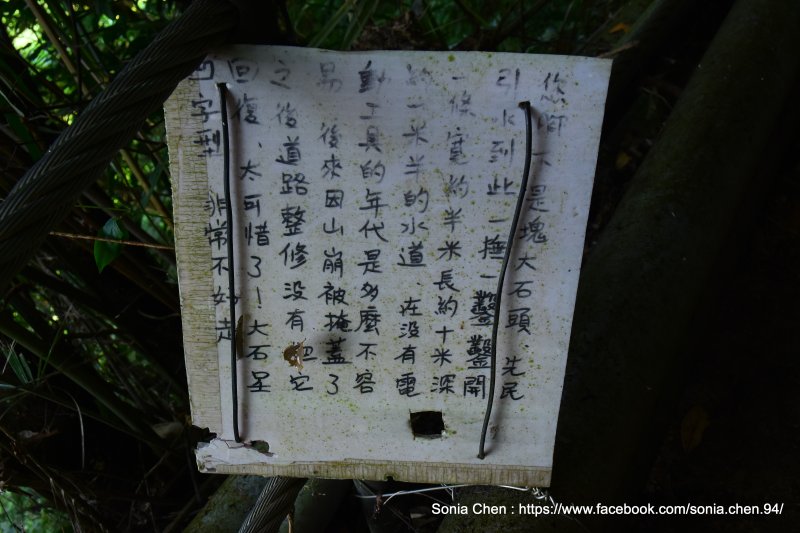 您 不是塊大石頭、先民
引水到此一捶一鑿鑿開
一條寬約半米長約十米深
約一米半的水道、在沒有電
動工具的年代是多麼不容
易、後來因山崩被掩蓋了
之後道路整修沒有把它
回復、太可惜了!大石呈
凹字型 非常不好走
Sonia Chen : https://www.facebook.com/sonia.chen.94/